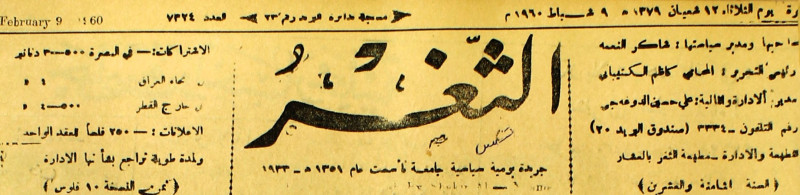 رة يوم الثلاثاء ١٢ شعبان ١٣٧٩ هـ ٩ شباط ١٩٦٠ م
مسجلة بدائرة البريد رقم ٢٣
العدد ٧٣٢٤
February 9 1960
صاحبها ومدير سياستها : شاكر النعمه
رئيس التحرير : المحامي كاظم الكنيباني
مدير الادارة والمالية : علي حسين الدوغجي
رقم التلفون ـ ٣٣٣٤ (صندوق البريد ٢٠)
المطبعة والادارة ـ مطبعة الثغر بالعشار
( السنة الثامنة والعشرين )
الثغر
جريدة يومية سياسية جامعة تأسست عام ١٣٥١ هـ ـ ١٩٣٣
الاشتراكات :ـ في البصرة ٥٠٠ـ٣ دنانير
في انحاء العراق ٤ »
في خارج القطر ٥٠٠ـ٤ »
الاعلانات :ـ ٢٥٠ فلساً للعقد الواحد
ولمدة طويلة تراجع بشأنها الادارة
( ثمن النسخة ١٠ فلوس )